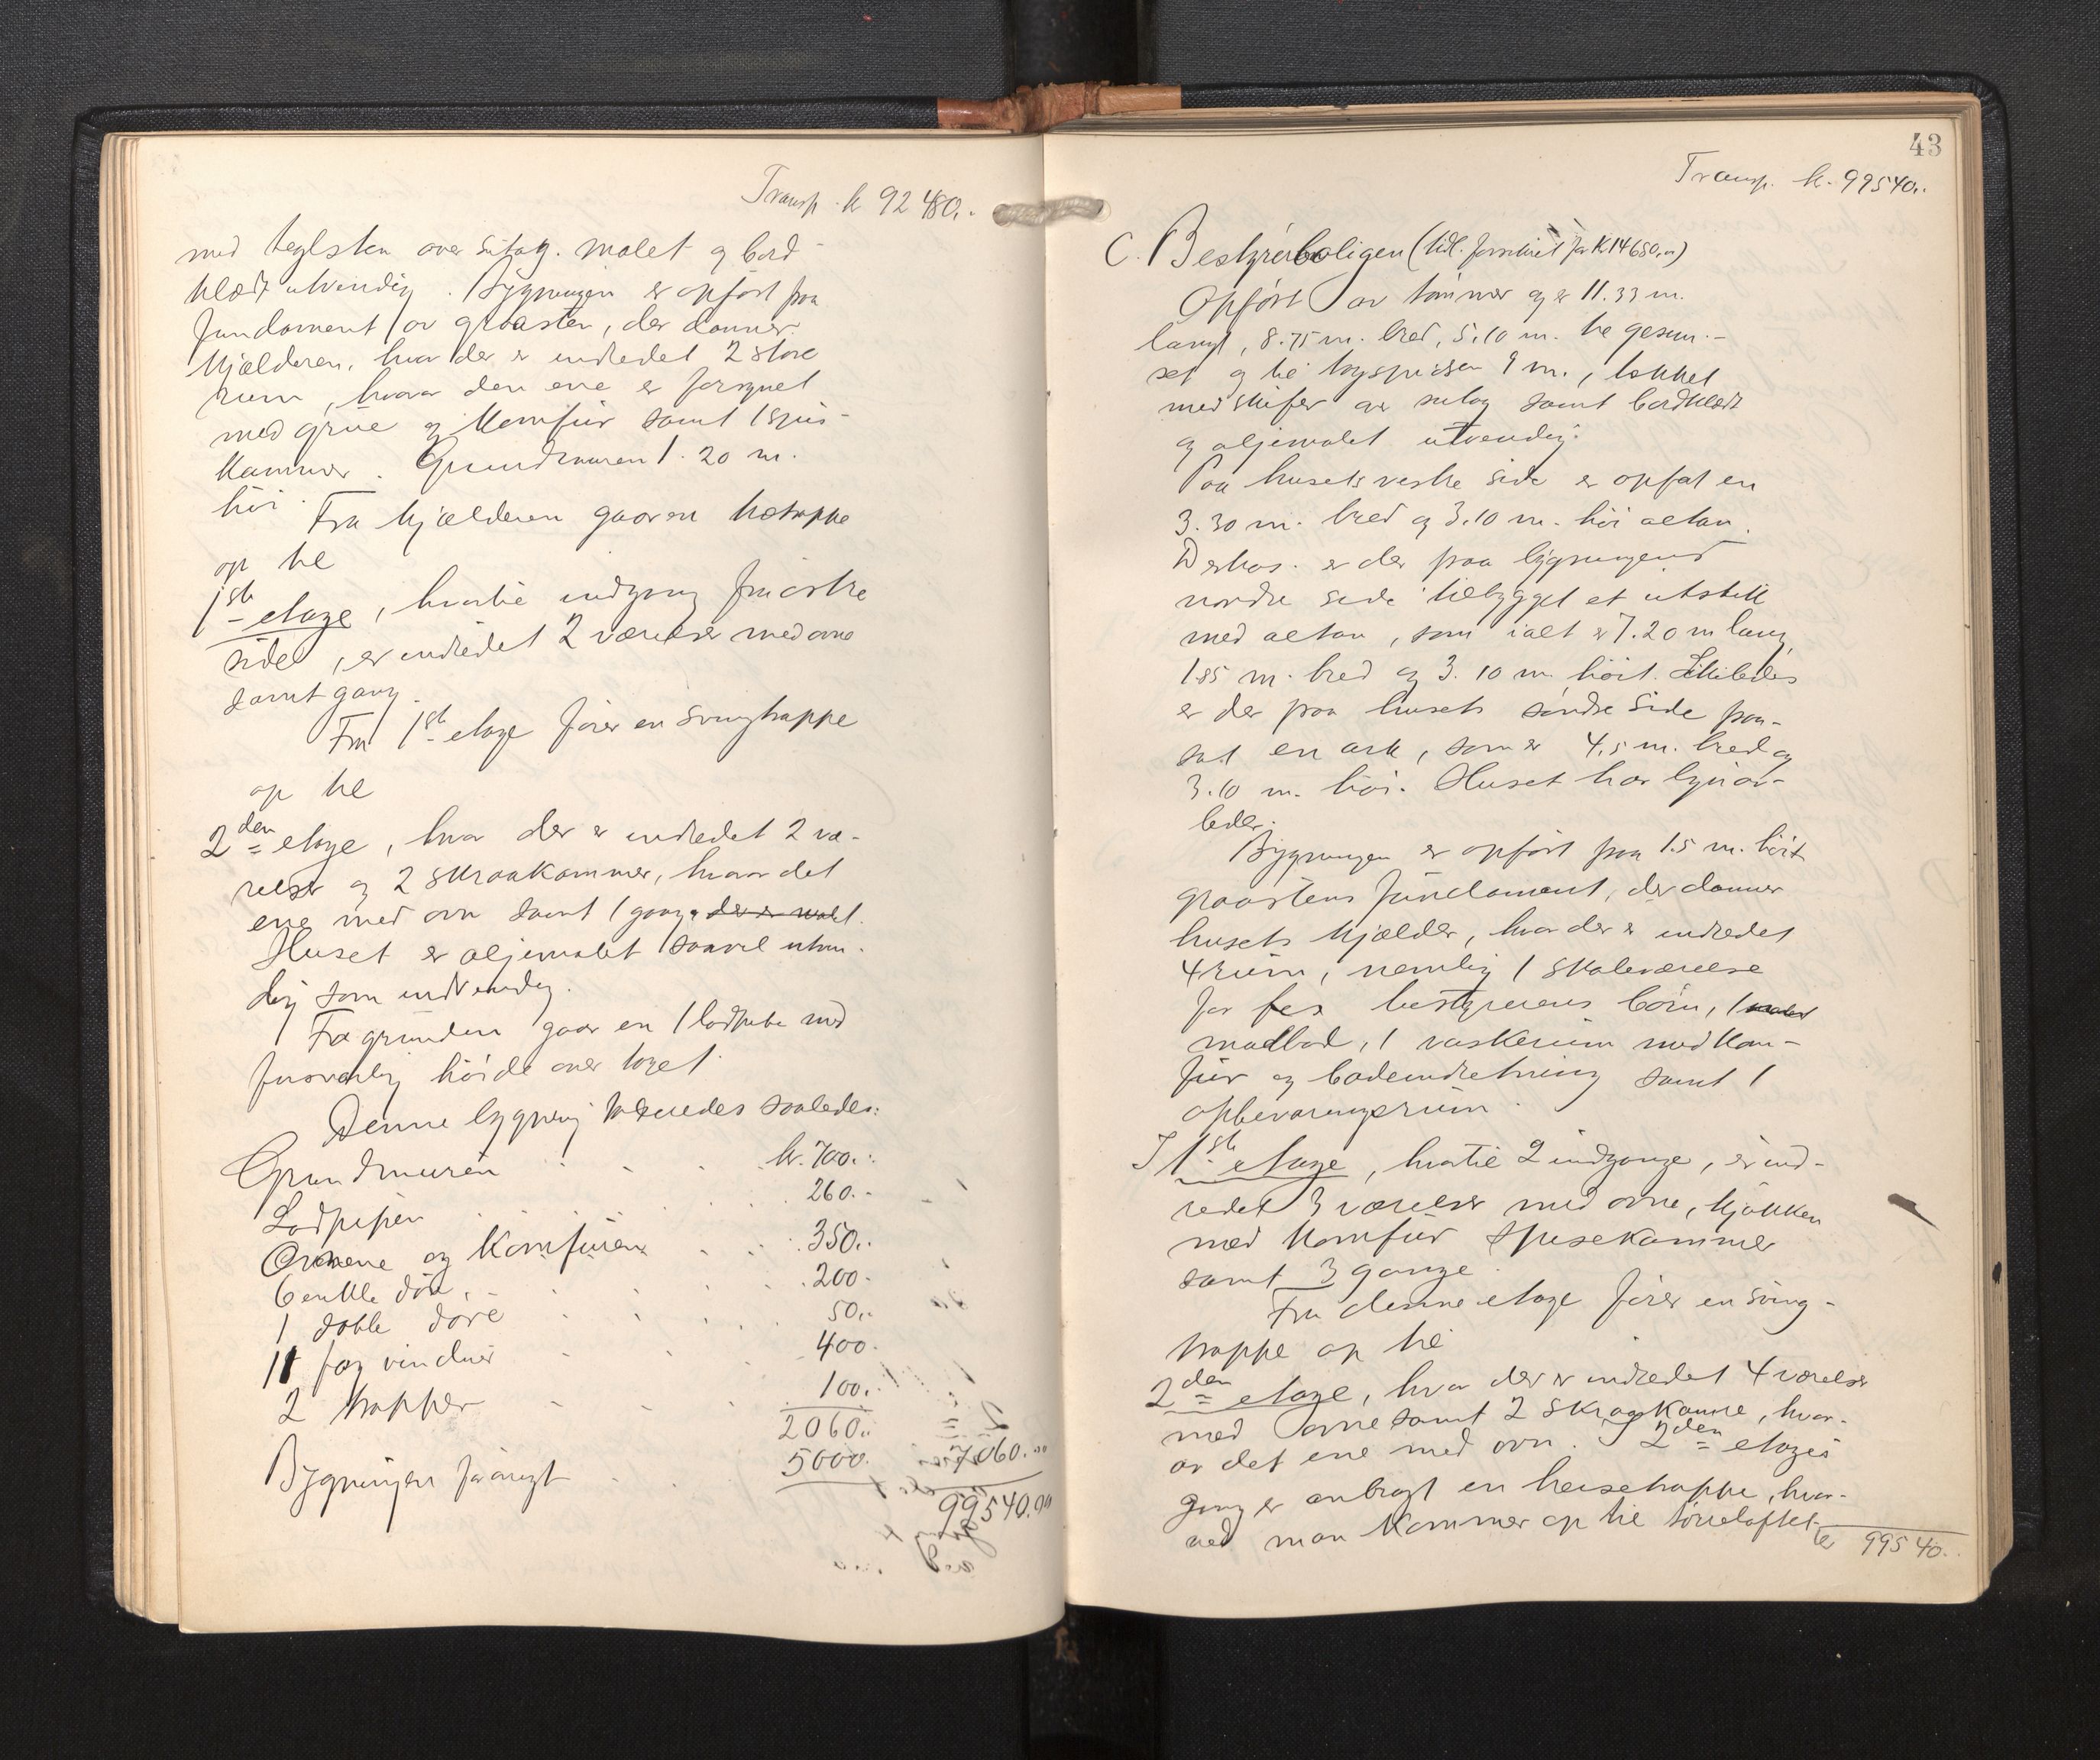 Transp. kr 92 480,.
med teglsten over sutag. malet og bord-
klædt utvendig. Bygningen er opført paa
fundament av graasten, der danner
kjælderen, hvor der er indredet 2 store
rum, hvorav den ene er forsynet
med grue og komfur samt 1 spis-
kammer. Grundmuren 1.20 m.
høi.
Fra kjælderen gaar en trappe
op til
1ste etage, hvortil indgang fra østre
side, er indredet 2 værelser med ovne
samt gang.
Fra 1ste etage fører en svingtrappe
op til
2den etage, hvor der er indredet 2 væ-
relser og 2 skraakammer, hvorav det
ene med ovn samt 1 gang. der er malt.
Huset er oljemalet saavel utven-
dig som indvendig.
Fra grunden gaar en 1 lødpibe med
forsvarlig høide over taget.
Denne bygning takseredes saaledes:
Grundmuren kr. 700.-
Lødpipen 260.-
Ovnene og Komfuren 350.-
6 enkle døre, 200.-
1 doble døre 50.-
11 fag vinduer 400.-
2 trapper 100.-
2060.-
Bygningen forøvrigt 5000. 7060.00
99540.00
43
Transp. kr. 99540,.
C. Bestyrerboligen (tidl. forsikret for kr 14650,00)
Opført av tømmer og er 11.33 m.
langt, 8.75 m. bred, 5.10 m. til gesim-
set og til tagspidsen 9 m., tækket
med skifer over sutag samt bordklædt
og oljemalet utvendig.
Paa husets vestre side er opsat en
3.30 m. bred og 3.10 m. høi altan.
Derhos er der paa bygningens
nordre side tilbygget et utstikk
med altan, som ialt er 7.20 m lang,
1.85 m. bred og 3.10 m. høit. Likeledes
er der paa husets søndre side paa-
sat en ark, som er 4,5 m. bred og
3.10 m. høi. Huset har lynav-
leder.
Bygningen er opført paa 1.5 m. høit
graastens fundament, der danner
husets kjælder, hvor der er indredet
4 rum, nemlig 1 skoleværelse
for bestyrerens børn, 1
matbod, 1 vaskerum med kom-
fur og badeindretning samt 1
opbevaringsrum.
I 1ste etage, hvortil 2 indgange, er ind-
redet 3 værelser med ovne, kjøkken
med komfur spisekammer
samt 3 gange.
Fra denne etage fører en sving-
trappe op til
2den etage, hvor der er indredet 4 værelser
med ovne samt 2 skraakamre, hvor-
av det ene med ovn. I 2den etages
gang er anbragt en heisetrappe, hvor-
ved man kommer op til tørreloftet.
kr 99540.-